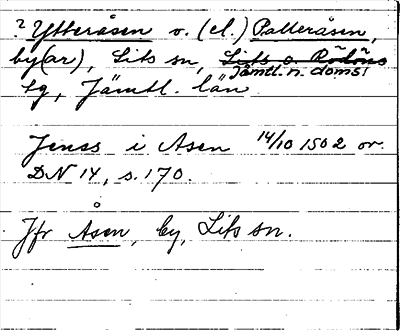 ? Ytteråsen o. (el.) Palleråsen,
by(ar), Lits sn, Lits o. Rödöns
Jämtl. n. doms!
tg, Jämtl. län
Jenss i Asen 14/10 1502 or.
DN 14, s. 170.
Jfr Åsen, by, Lits sn.